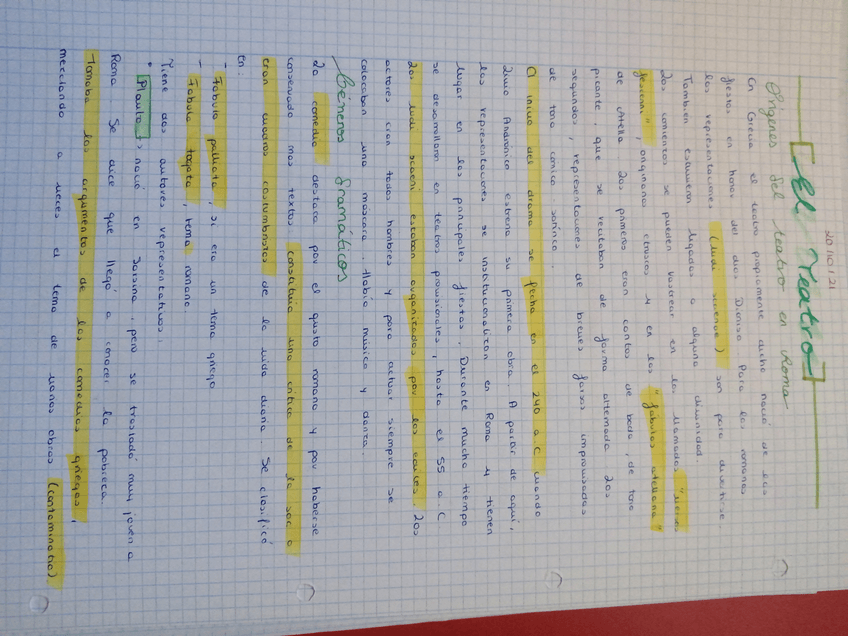 20/10/21
El Teatro
Orígenes del teatro en Roma
En Grecia el teatro propiamente dicho nació de las
fiestas en honor del dios Dioniso. Para los romanos
las representaciones (ludi scaenae) son para divertirse
También estuvieron ligadas a alguna divinidad.
Los comienzos se pueden rastrear en los llamados "versos
fescenni", originarios etruscos y en las "fábulas atellana"
de Atella. Los primeros eran cantos de boda, de tono
picante, que se recitaban de forma alternada. Los
segundos, representaciones de breves farsas improvisadas
de tono cómico satírico.
El inicio del drama se fecha en el 240 a.C cuando
Livio Andrónico estrena su primera obra. A partir de aquí,
las representaciones se institucionalizan en Roma y tienen
lugar en las principales fiestas. Durante mucho tiempo
se desarrollaron en teatros provisionales, hasta el 55 a.C
Los ludi scaeni estaban organizados por los Los
actores eran todos hombres y para actuar siempre se
colocaban una máscara. Había música y danza.
Géneros dramáticos
La comedia destaca por el gusto romano y por haberse
conservado más textos. Constituía una crítica de la socia
eran cuadros costumbristas de la vida diaria. Se clasificó
en:
- Fabula palliata, si era un tema griego
- Fabula togata, tema romano
Tiene dos autores representativos:
• Plauto nació en Sarsina, pero se trasladó muy joven a
Roma. Se dice que llegó a conocer la pobreza.
Tomaba los argumentos de las comedias griegas,
mezclando a veces el tema de varias obras (contaminatio)